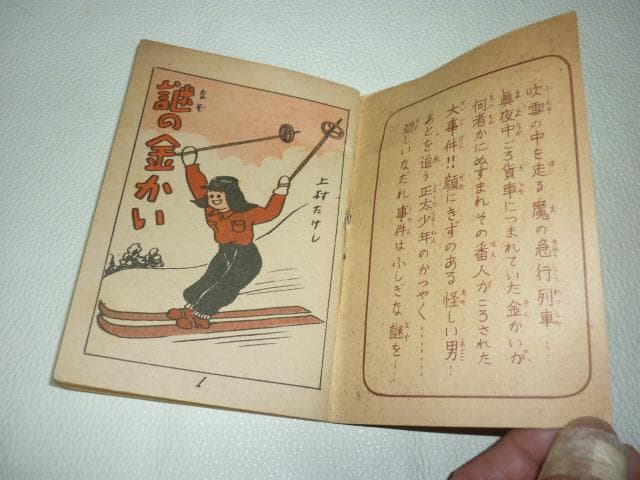 吹雪の中を走る魔の急行列車……
眞夜中ごろ貨車につまれていた金かいが
何者かにぬすまれその番人がころされた
大事件!!顔にきずのある怪しい男…
あとを追う正太少年のかつやく……
恐しいなだれ事件はふしぎな謎を…
謎の金かい
上村たけし
1